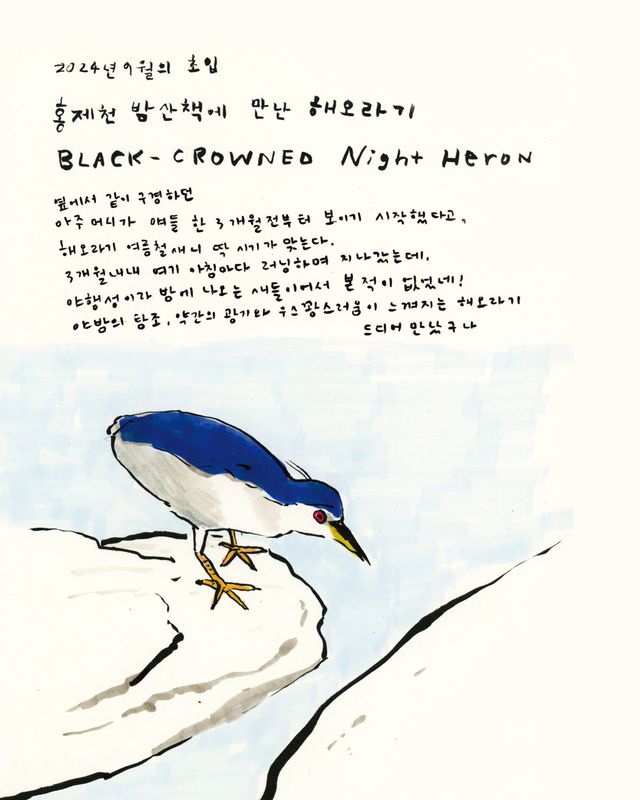 2024년 9월의 초입
홍제천 밤산책에 만난 해오라기
BLACK-CROWNED Night HeroN
옆에서 같이 구경하던
아주머니가 얘들 한 3개월전부터 보이기 시작했다고,
해오라기 여름철새니 딱 시기가 맞는다.
3개월내내 여기 아침마다 러닝하며 지나갔는데,
야행성이라 밤에 나오는 새들이어서 본 적이 없었네!
야밤의 탐조, 약간의 광기와 우스꽝스러움이 느껴지는 해오라기
드디어 만났구나